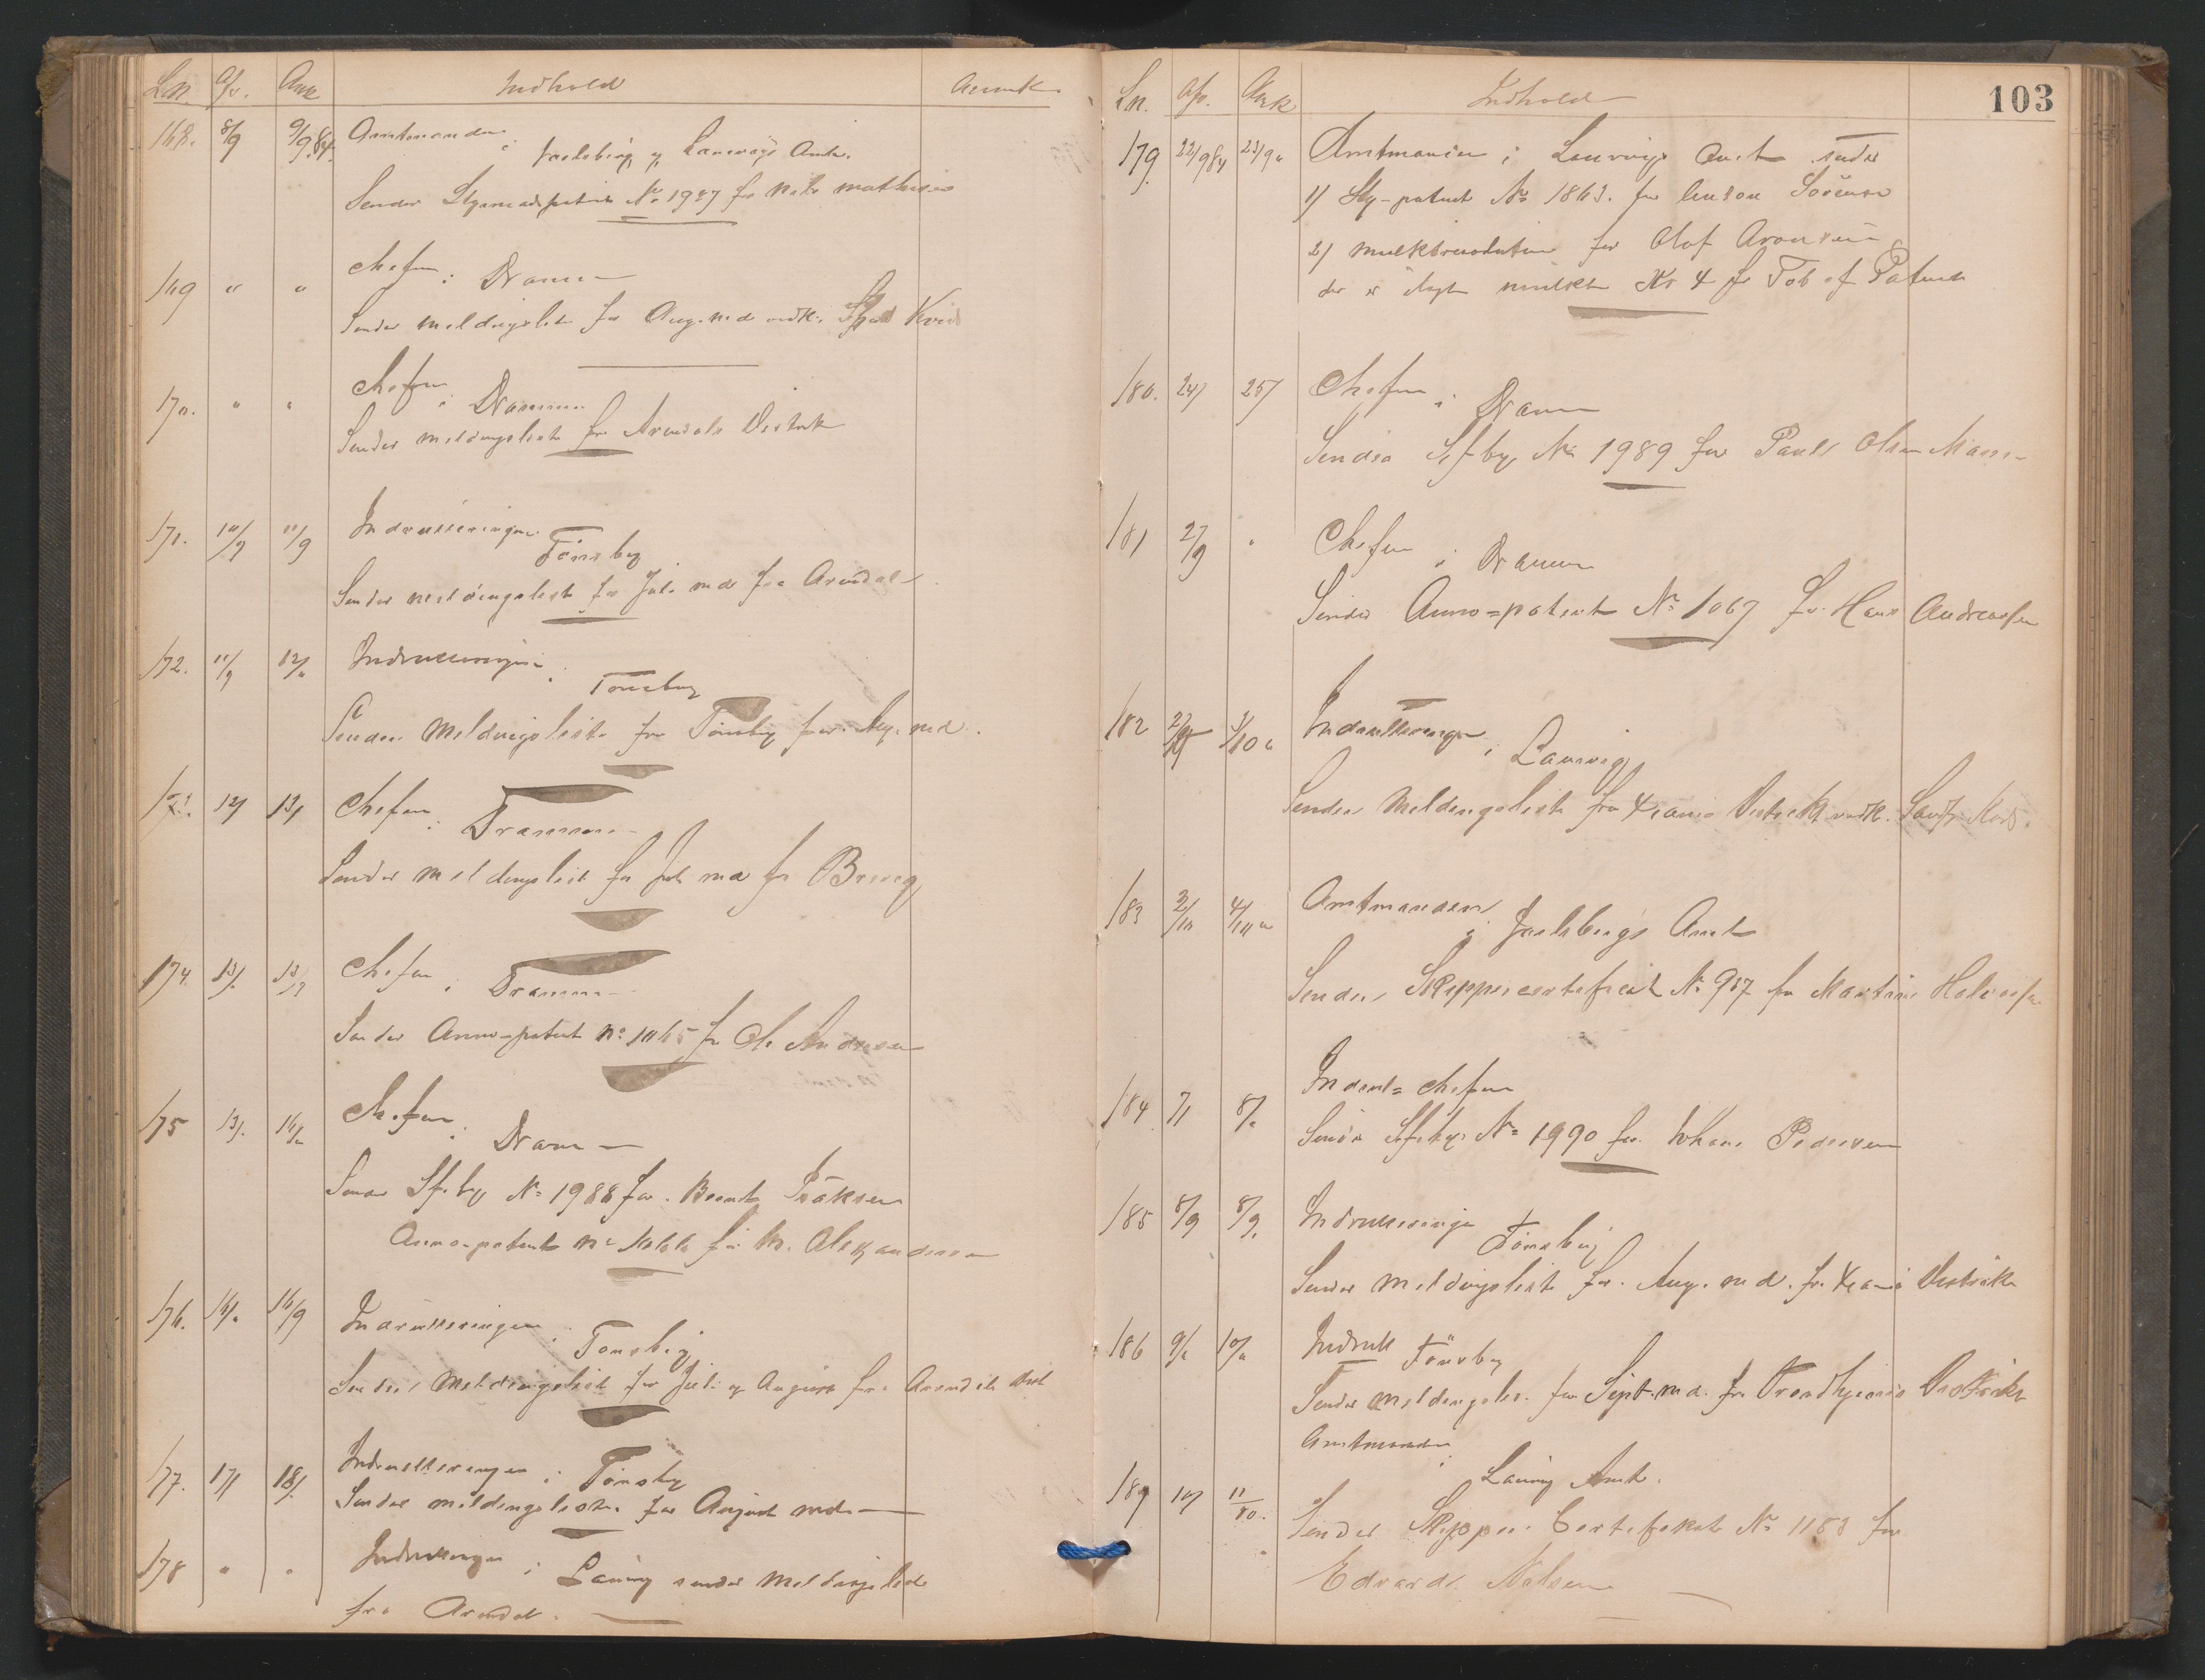 Ln. Afs. Ank Indhold Anmk.
168. 8/9 9/9 84. Amtmanden i Jarlsberg og Laurvigs Amt.
Sender Styrmandspatent No 1987 for Mathisen
169 " " Chefen i Dramm
Sender meldingsliste for Aug. md vedk.
170. " " Chefen i Drammen
Sender meldingsliste fra Arendals Distrikt
171. 10/9 11/9 Indrulleringen Tönsberg
Sender meldingsliste for Juli md fra Arendal
172. 11/9 12/" Indrulleringen i Tönsberg
Sender Meldingsliste fra Tönsberg for Aug. md.
173. 12/ 13/ Chefen i Drammen
Sender meldingsliste for Juli md fra Brevig
174. 13/. 13/9 Chefen i Drammen
Sender Anno-patent No 1065 for Ole Andresen
175 13/. 14/" Chefen i Dramm
Sender Sf.bg No 1988 for Bernt Isaksen
Anno-patent No for M. Alexandersen
176. 14/" 16/9 Indrulleringen i Tonsberg
Sender Meldingsliste for Juli og August fra Arendals Dist
177. 17/ 18/. Indrulleringen i Tönsberg
Sender meldingsliste for August md
178 " " Indrulleringen i Laurvig sender Meldingsliste
fra Arendal.
103
Ln. Afs. Ank Indhold
179. 22/9 84 23/9 " Amtmanden i Laurvigs Amt sender
1) Sty-patent No 1863. for Sörensen
2) Mulktresolution for Olaf Aronsen
der er ilagt mulkt Kr 4 for Tab af Patent
180. 24/ 25/ Chefen i Dramm
Sender Sf bg No 1989 for Paul Olsen
181 27/9 " Chefen i Dramm
Sender Anno=patent No 1067 for Hans Andreassen
182 27/9 3/10 " Indrulleringen i Laurvig
Sender Meldingsliste fra Xania Distrikt vedk.
183 3/10 4/10 " Amtmanden i Jarlsbergs Amt
Sender Skippercertificat No 907 for Martin Halvorsen
184 7/ 8/" Indrul= chefen
Sender Sf.bg. No 1990 for Johan Pedersen
185 8/9 8/9. Indrulleringen Tönsberg
Sender meldingsliste for Aug. md. fra Xania Distrikt
186 9/" 10/" Indrull Tönsberg
Sender meldingslis. for Sept. md. fra Trondhjems Distrikt
Amtmanden i Laurvig Amt.
189 10/ 11/10. Sender Skipper Certifikat No 1183 for
Edvard Nilsen